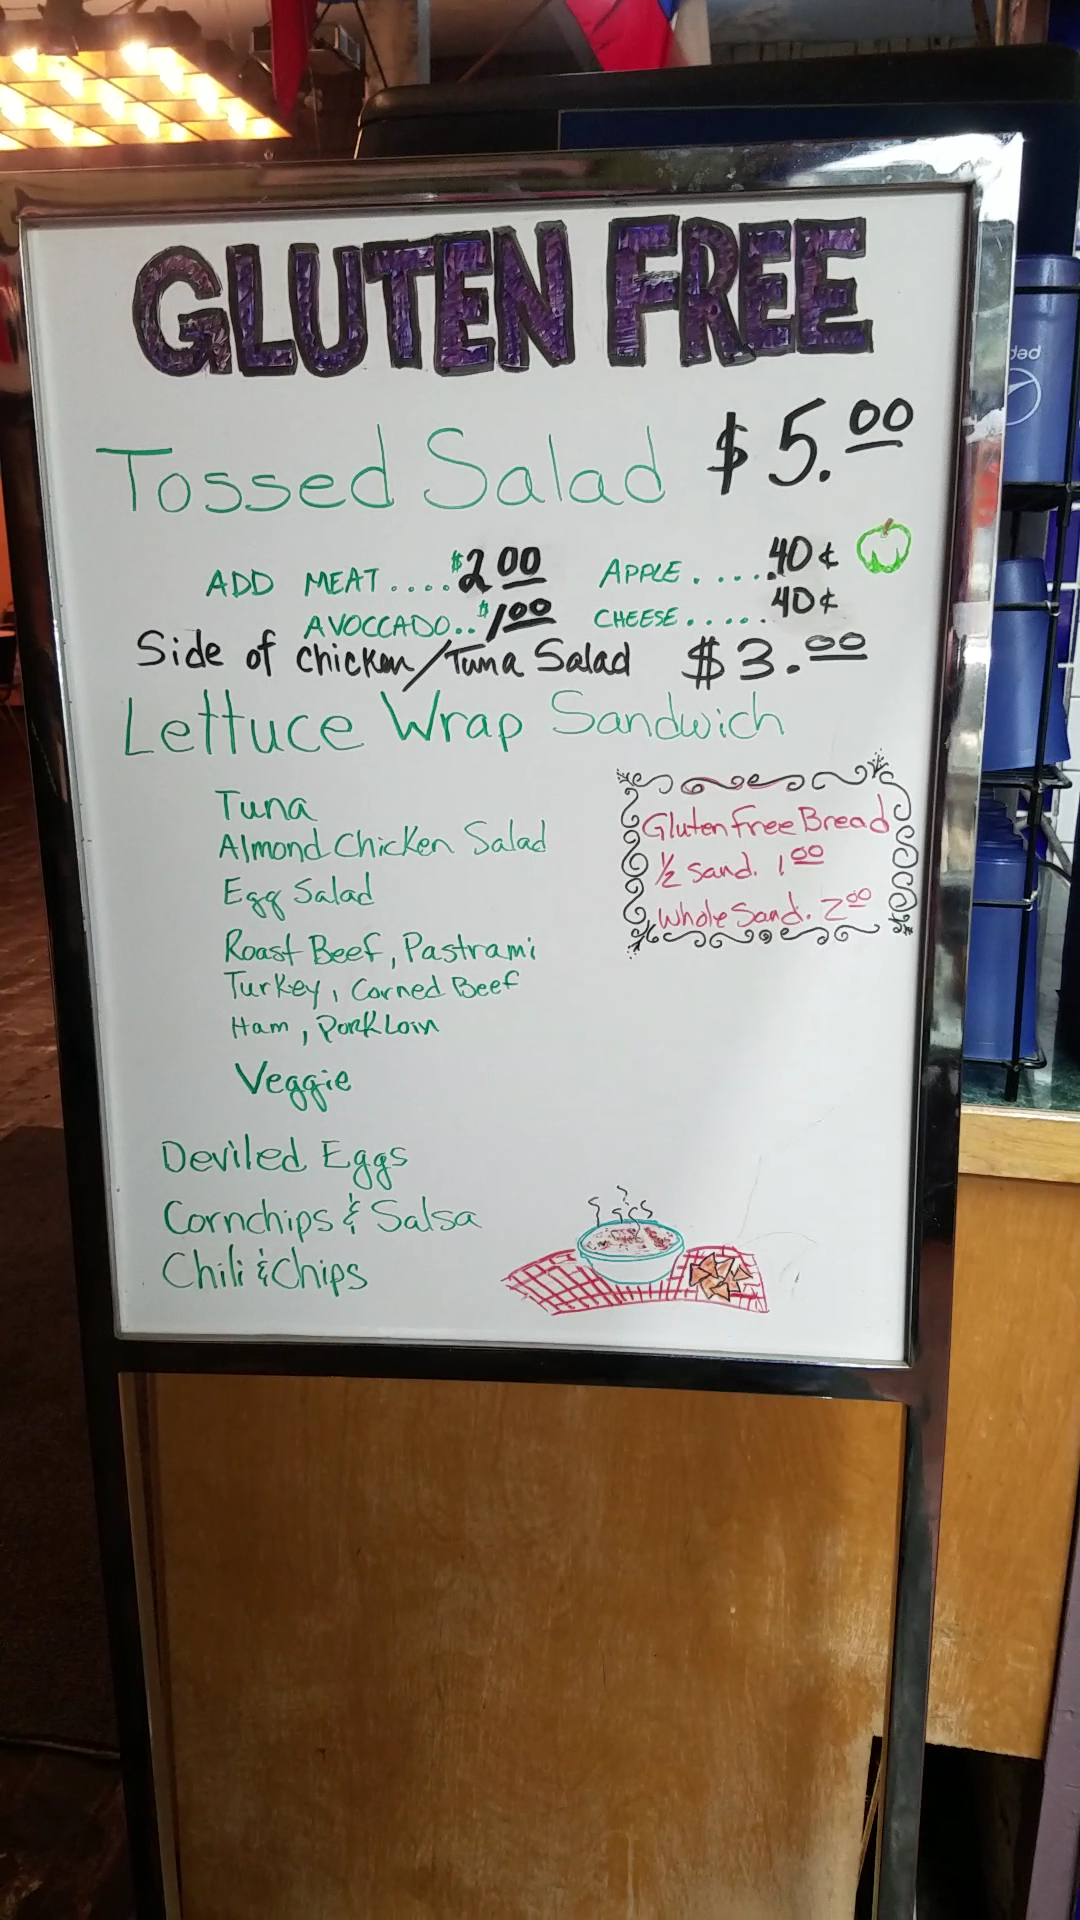 GLUTEN FREE
Tossed Salad $5.00
ADD MEAT....$2 00 APPLE.....40¢
AVOCCADO..$1 00 CHEESE.....40¢
Side of Chicken/Tuna Salad $3.00
Lettuce Wrap Sandwich
Tuna
Almond Chicken Salad
Egg Salad
Roast Beef, Pastrami
Turkey, Corned Beef
Ham, Pork Loin
Veggie
Gluten Free Bread
1/2 Sand. 1 00
Whole Sand. 2 00
Deviled Eggs
Cornchips & Salsa
Chili & Chips